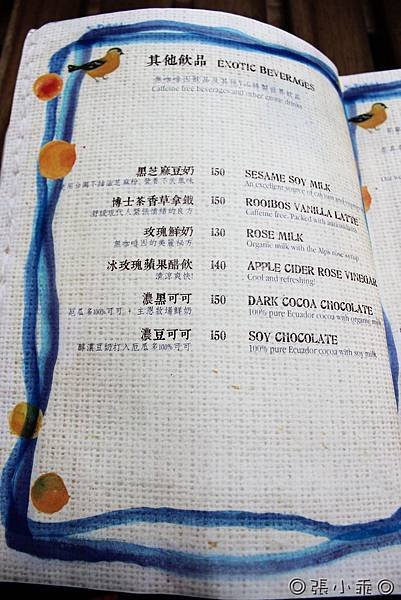 其他飲品 EXOTIC BEVERAGES
無咖啡因飲品及其他
Caffeine free beverages and other exotic drinks
黑芝麻豆奶 150 SESAME SOY MILK
An excellent source of calcium and
博士茶香草拿鐵 150 ROOIBOS VANILLA LATTE
舒緩現代人緊張情緒的良方 Caffeine free. Packed with antioxidants
玫瑰鮮奶 130 ROSE MILK
無咖啡因的美麗秘方 Organic milk with the Alps rose syrup
冰玫瑰蘋果醋飲 140 APPLE CIDER ROSE VINEGAR
清涼爽快! Cool and refreshing!
濃黑可可 150 DARK COCOA CHOCOLATE
厄瓜多100%可可，主恩牧場鮮奶 100% pure Ecuador cocoa with organic milk
濃豆可可 150 SOY CHOCOLATE
醇濃豆奶打入厄瓜多100%可可 100% pure Ecuador cocoa with soy milk
◎張小乖◎